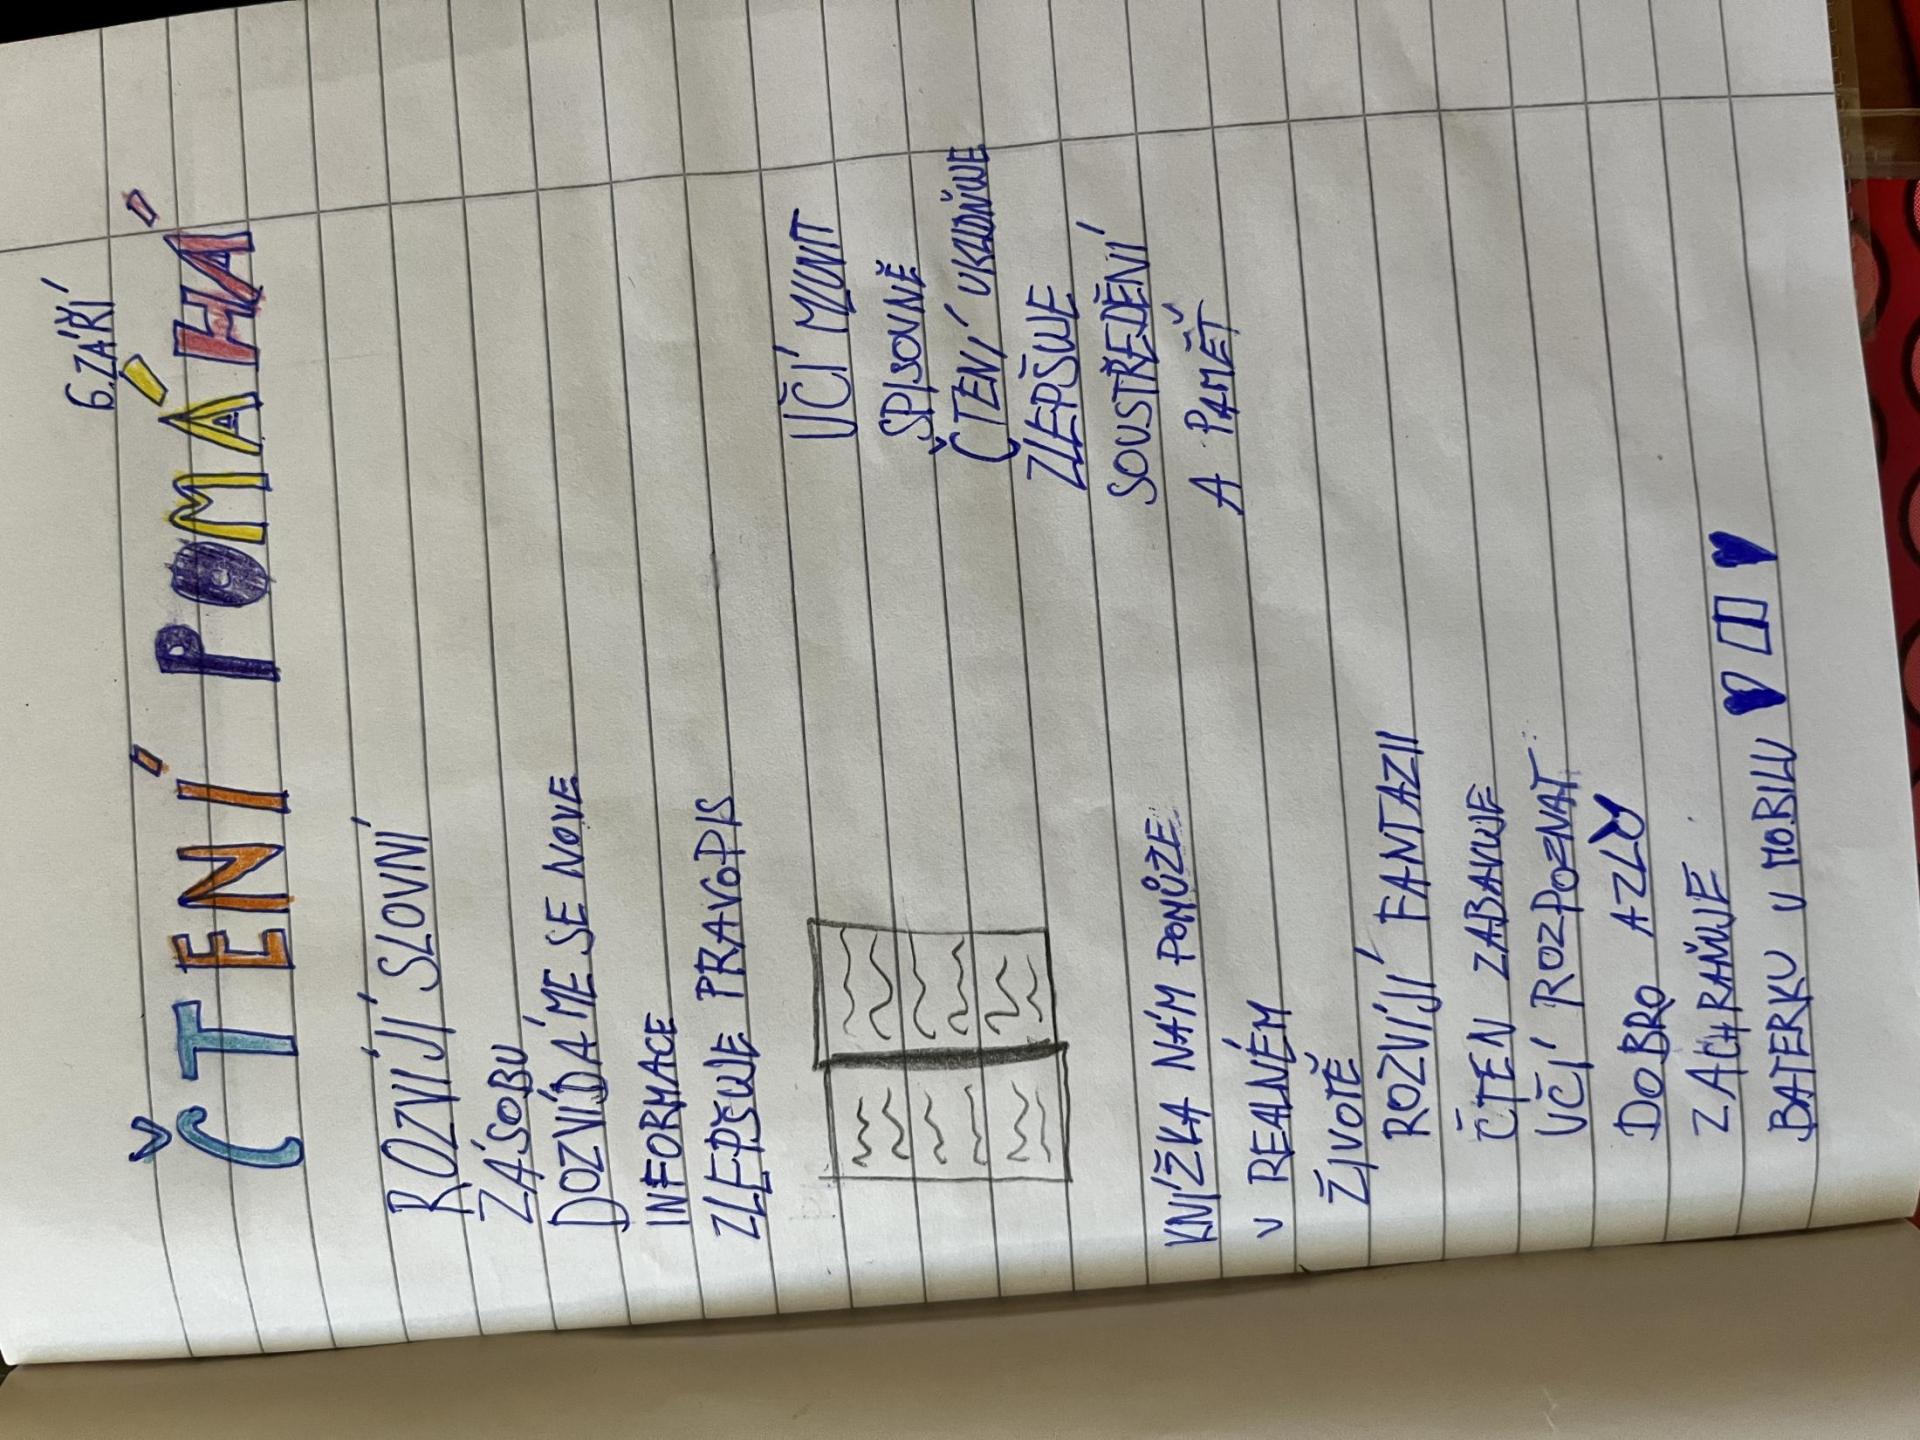 6. ZÁŘÍ
ČTENÍ POMÁHÁ
ROZVÍJÍ SLOVNÍ
ZÁSOBU
DOZVÍDÁME SE NOVÉ
INFORMACE
ZLEPŠUJE PRAVOPIS
UČÍ MLUVIT
SPISOVNĚ
ČTENÍ UKLIDŇUJE
ZLEPŠUJE
SOUSTŘEDĚNÍ
A PAMĚŤ
KNÍŽKA NÁM POMŮŽE
V REALNÉM
ŽIVOTĚ
ROZVÍJÍ FANTAZII
ČTEN ZABAVUJE
UČÍ ROZPOZNAT
DOBRO A ZLO
ZACHRAŇUJE
BATERKU V MOBILU